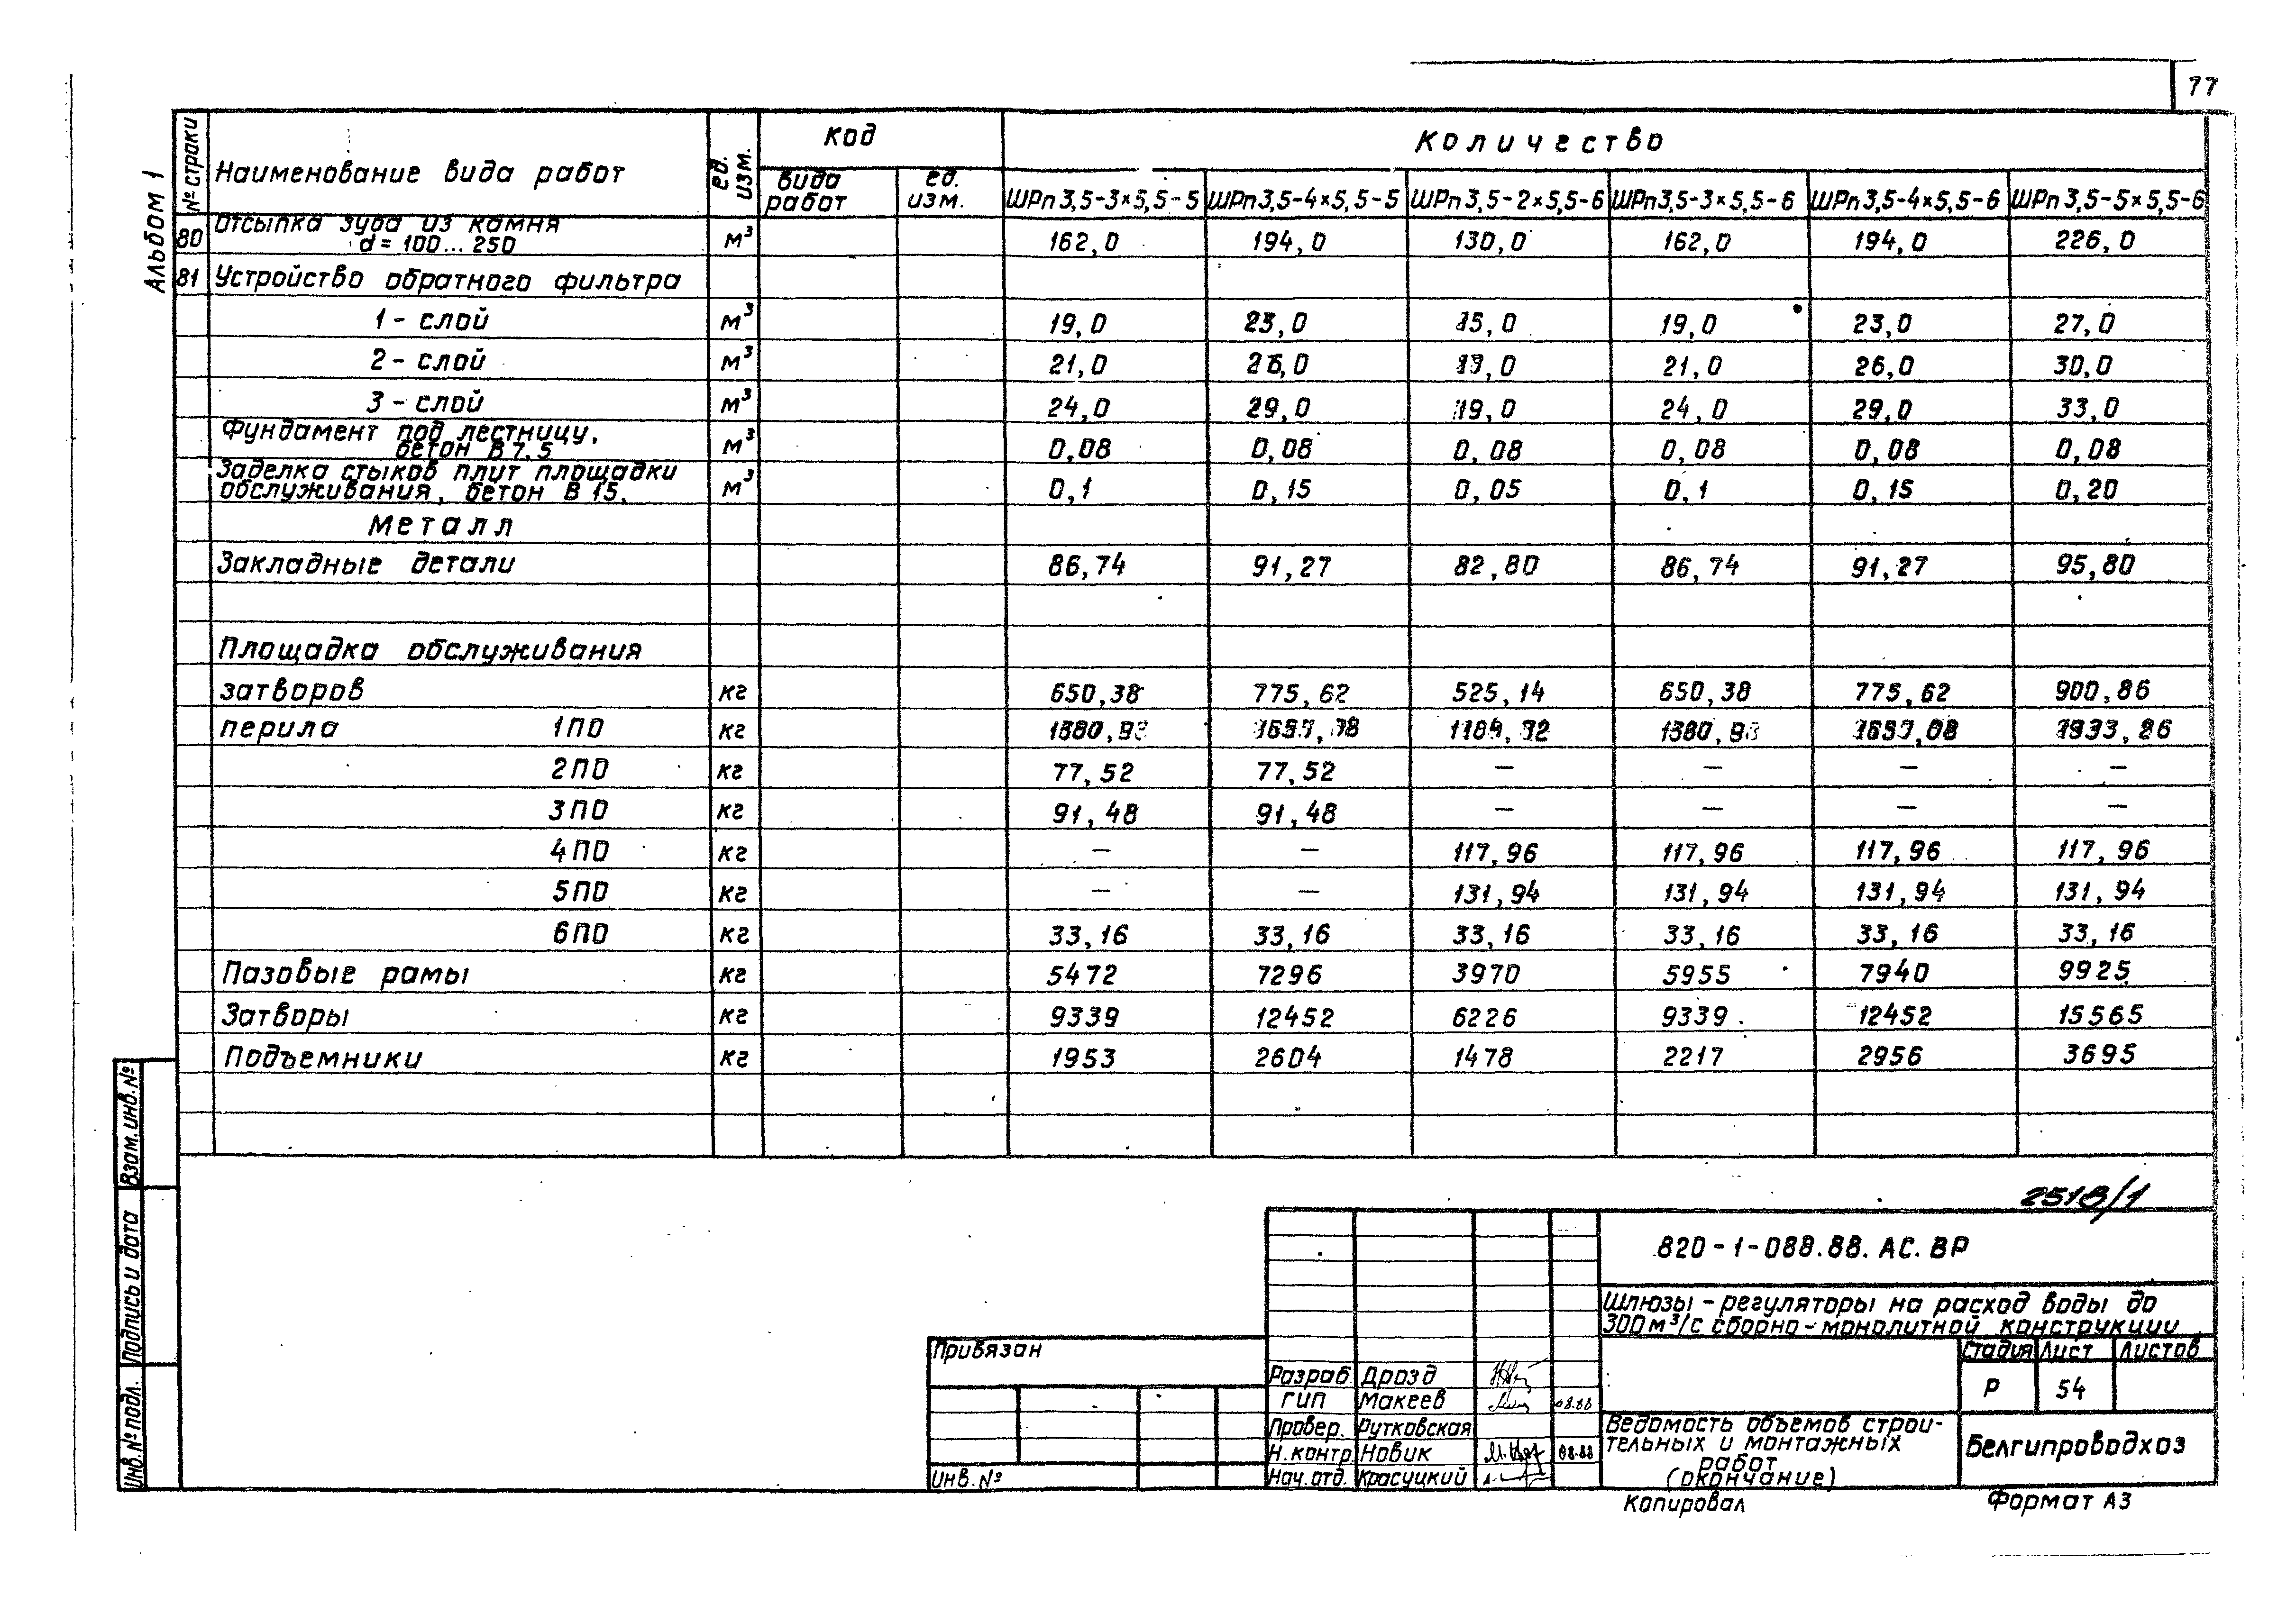 77
Альбом 1
№ строки | Наименование вида работ | ед. изм. | Код | Количество
вида работ | ед. изм. | ШРп 3,5-3×5,5-5 | ШРп 3,5-4×5,5-5 | ШРп 3,5-2×5,5-6 | ШРп 3,5-3×5,5-6 | ШРп 3,5-4×5,5-6 | ШРп 3,5-5×5,5-6
80 | Отсыпка зуба из камня
d = 100...250 | м³ | 162,0 | 194,0 | 130,0 | 162,0 | 194,0 | 226,0
81 | Устройство обратного фильтра
1 - слой | м³ | 19,0 | 23,0 | 15,0 | 19,0 | 23,0 | 27,0
2 - слой | м³ | 21,0 | 26,0 | 21,0 | 26,0 | 30,0
3 - слой | м³ | 24,0 | 29,0 | 19,0 | 24,0 | 29,0 | 33,0
Фундамент под лестницу,
бетон В 7.5 | м³ | 0,08 | 0,08 | 0,08 | 0,08 | 0,08 | 0,08
Заделка стыков плит площадки
обслуживания, бетон В 15. | м³ | 0,1 | 0,15 | 0,05 | 0,1 | 0,15 | 0,20
Металл
Закладные детали | 86,74 | 91,27 | 82,80 | 86,74 | 91,27 | 95,80
Площадка обслуживания
затворов | кг | 650,38 | 775,62 | 525,14 | 650,38 | 775,62 | 900,86
перила 1ПО | кг
2ПО | кг | 77,52 | 77,52 | – | – | – | –
3ПО | кг | 91,48 | 91,48 | – | – | – | –
4ПО | кг | – | – | 117,96 | 117,96 | 117,96 | 117,96
5ПО | кг | – | – | 131,94 | 131,94 | 131,94 | 131,94
6ПО | кг | 33,16 | 33,16 | 33,16 | 33,16 | 33,16 | 33,16
Пазовые рамы | кг | 5472 | 7296 | 3970 | 5955 | 7940 | 9925
Затворы | кг | 9339 | 12452 | 6226 | 9339 | 12452 | 15565
Подъемники | кг | 1953 | 2604 | 1478 | 2217 | 2956 | 3695
Взам. инв. №
Подпись и дата
Инв. № подл.
2513/1
820-1-088.88. АС. ВР
Шлюзы-регуляторы на расход воды до
300 м³/с сборно-монолитной конструкции
Привязан
Инв. №
Разраб. Дрозд
ГИП Макеев 08.88
Провер. Рутковская
Н. контр. Новик 08.88
Нач. отд. Красуцкий
Стадия Лист Листов
Р 54
Ведомость объемов строи-
тельных и монтажных
работ
(окончание)
Белгипроводхоз
Копировал
Формат А3